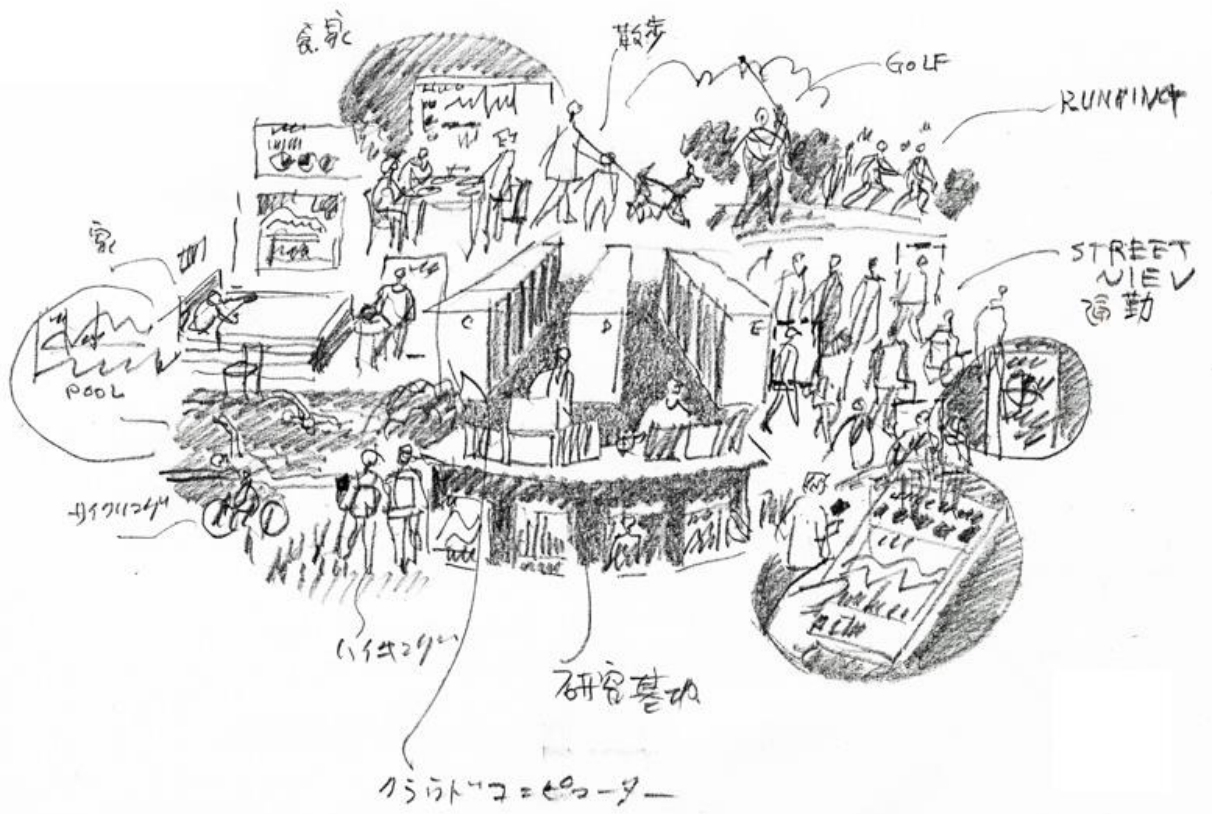 散歩
GOLF
RUNNING
家
STREET
VIEV
通勤
POOL
C
D
E
サイクリング
ハイキング
研究基地
クラウドコンピューター